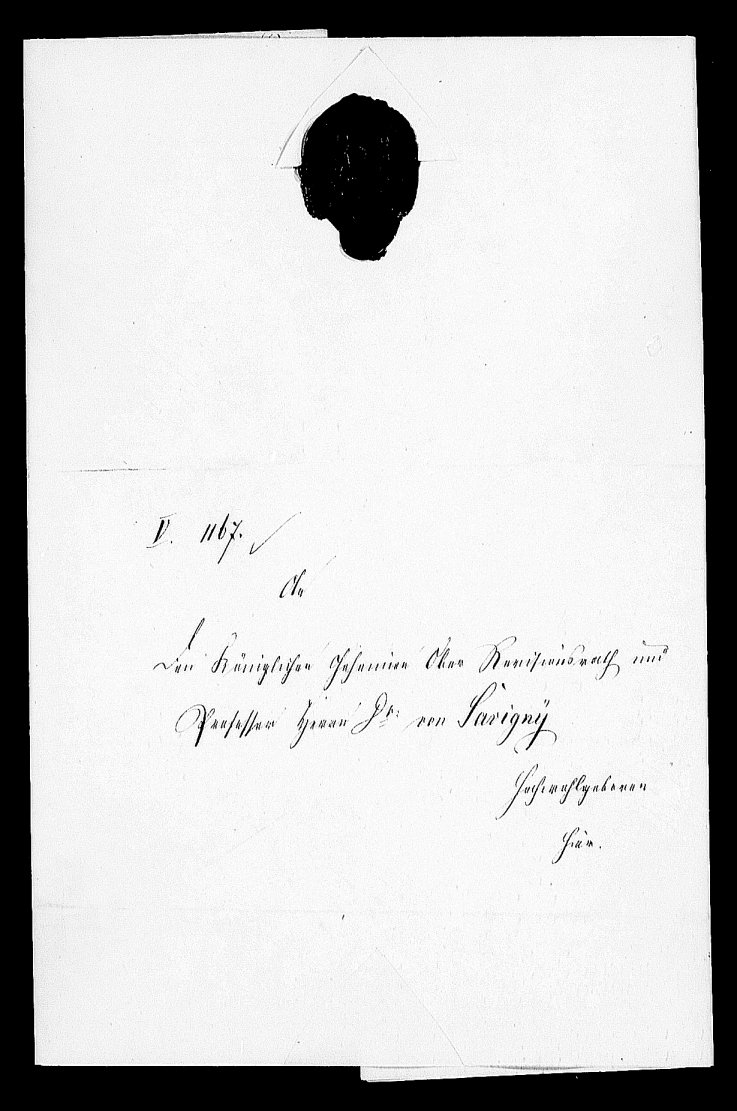 V. 1167.
An
den Königlichen Geheimen Ober Revisionsrath und
Professor Herrn Dr: von Savigny
Hochwohlgeboren
hier.